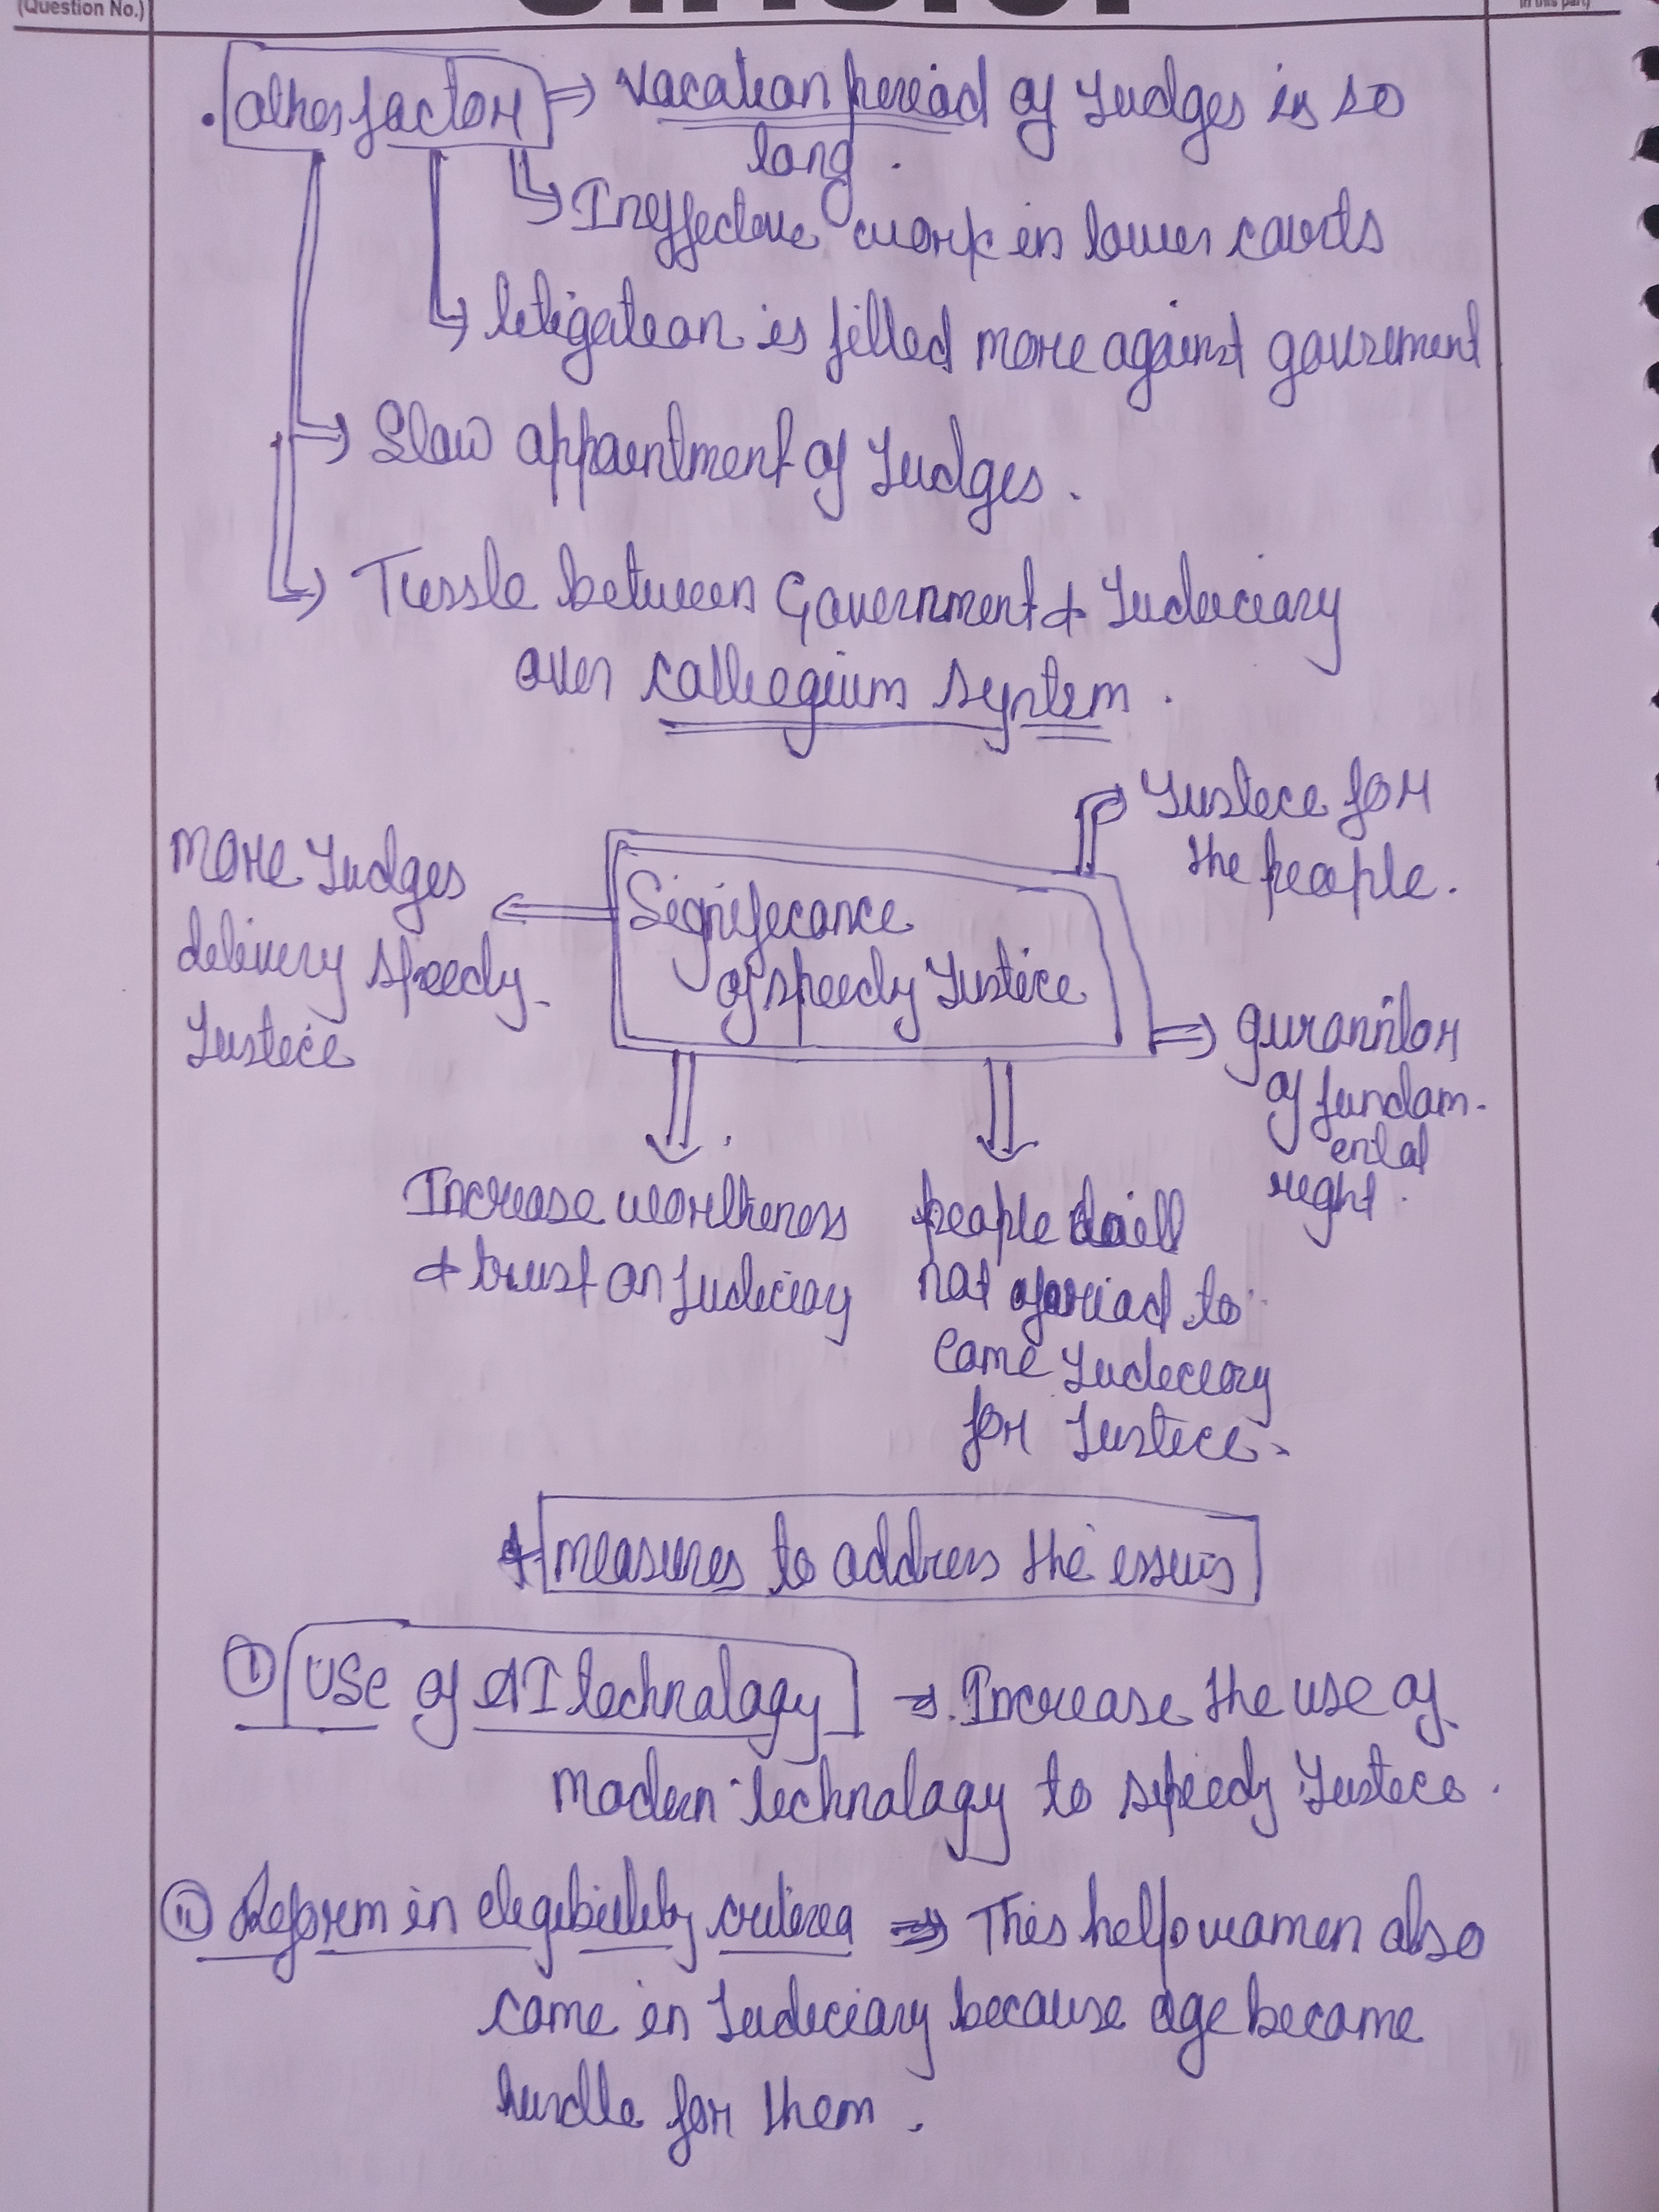 (Question No.)
in this part)
. other factor => Vacation period of Judges is so
long .
Ineffective work in lower courts
litigation is filled more against government
Slow appointment of Judges .
Tussle between Government & Judiciary
over collegium system .
Justice for
the people .
More Judges
delivery speedy
Justice
Significance
of speedy Justice
of fundam-
ental
right .
Increase wortheness
& trust on Judiciary
people
not to
come Judiciary
for Justice
measures to address the issues
① Use of AI technology → Increase the use of
Modern technology to speedy Justice .
② Reform in eligibility criteria => This help women also
come in Judiciary because age became
hurdle for them .